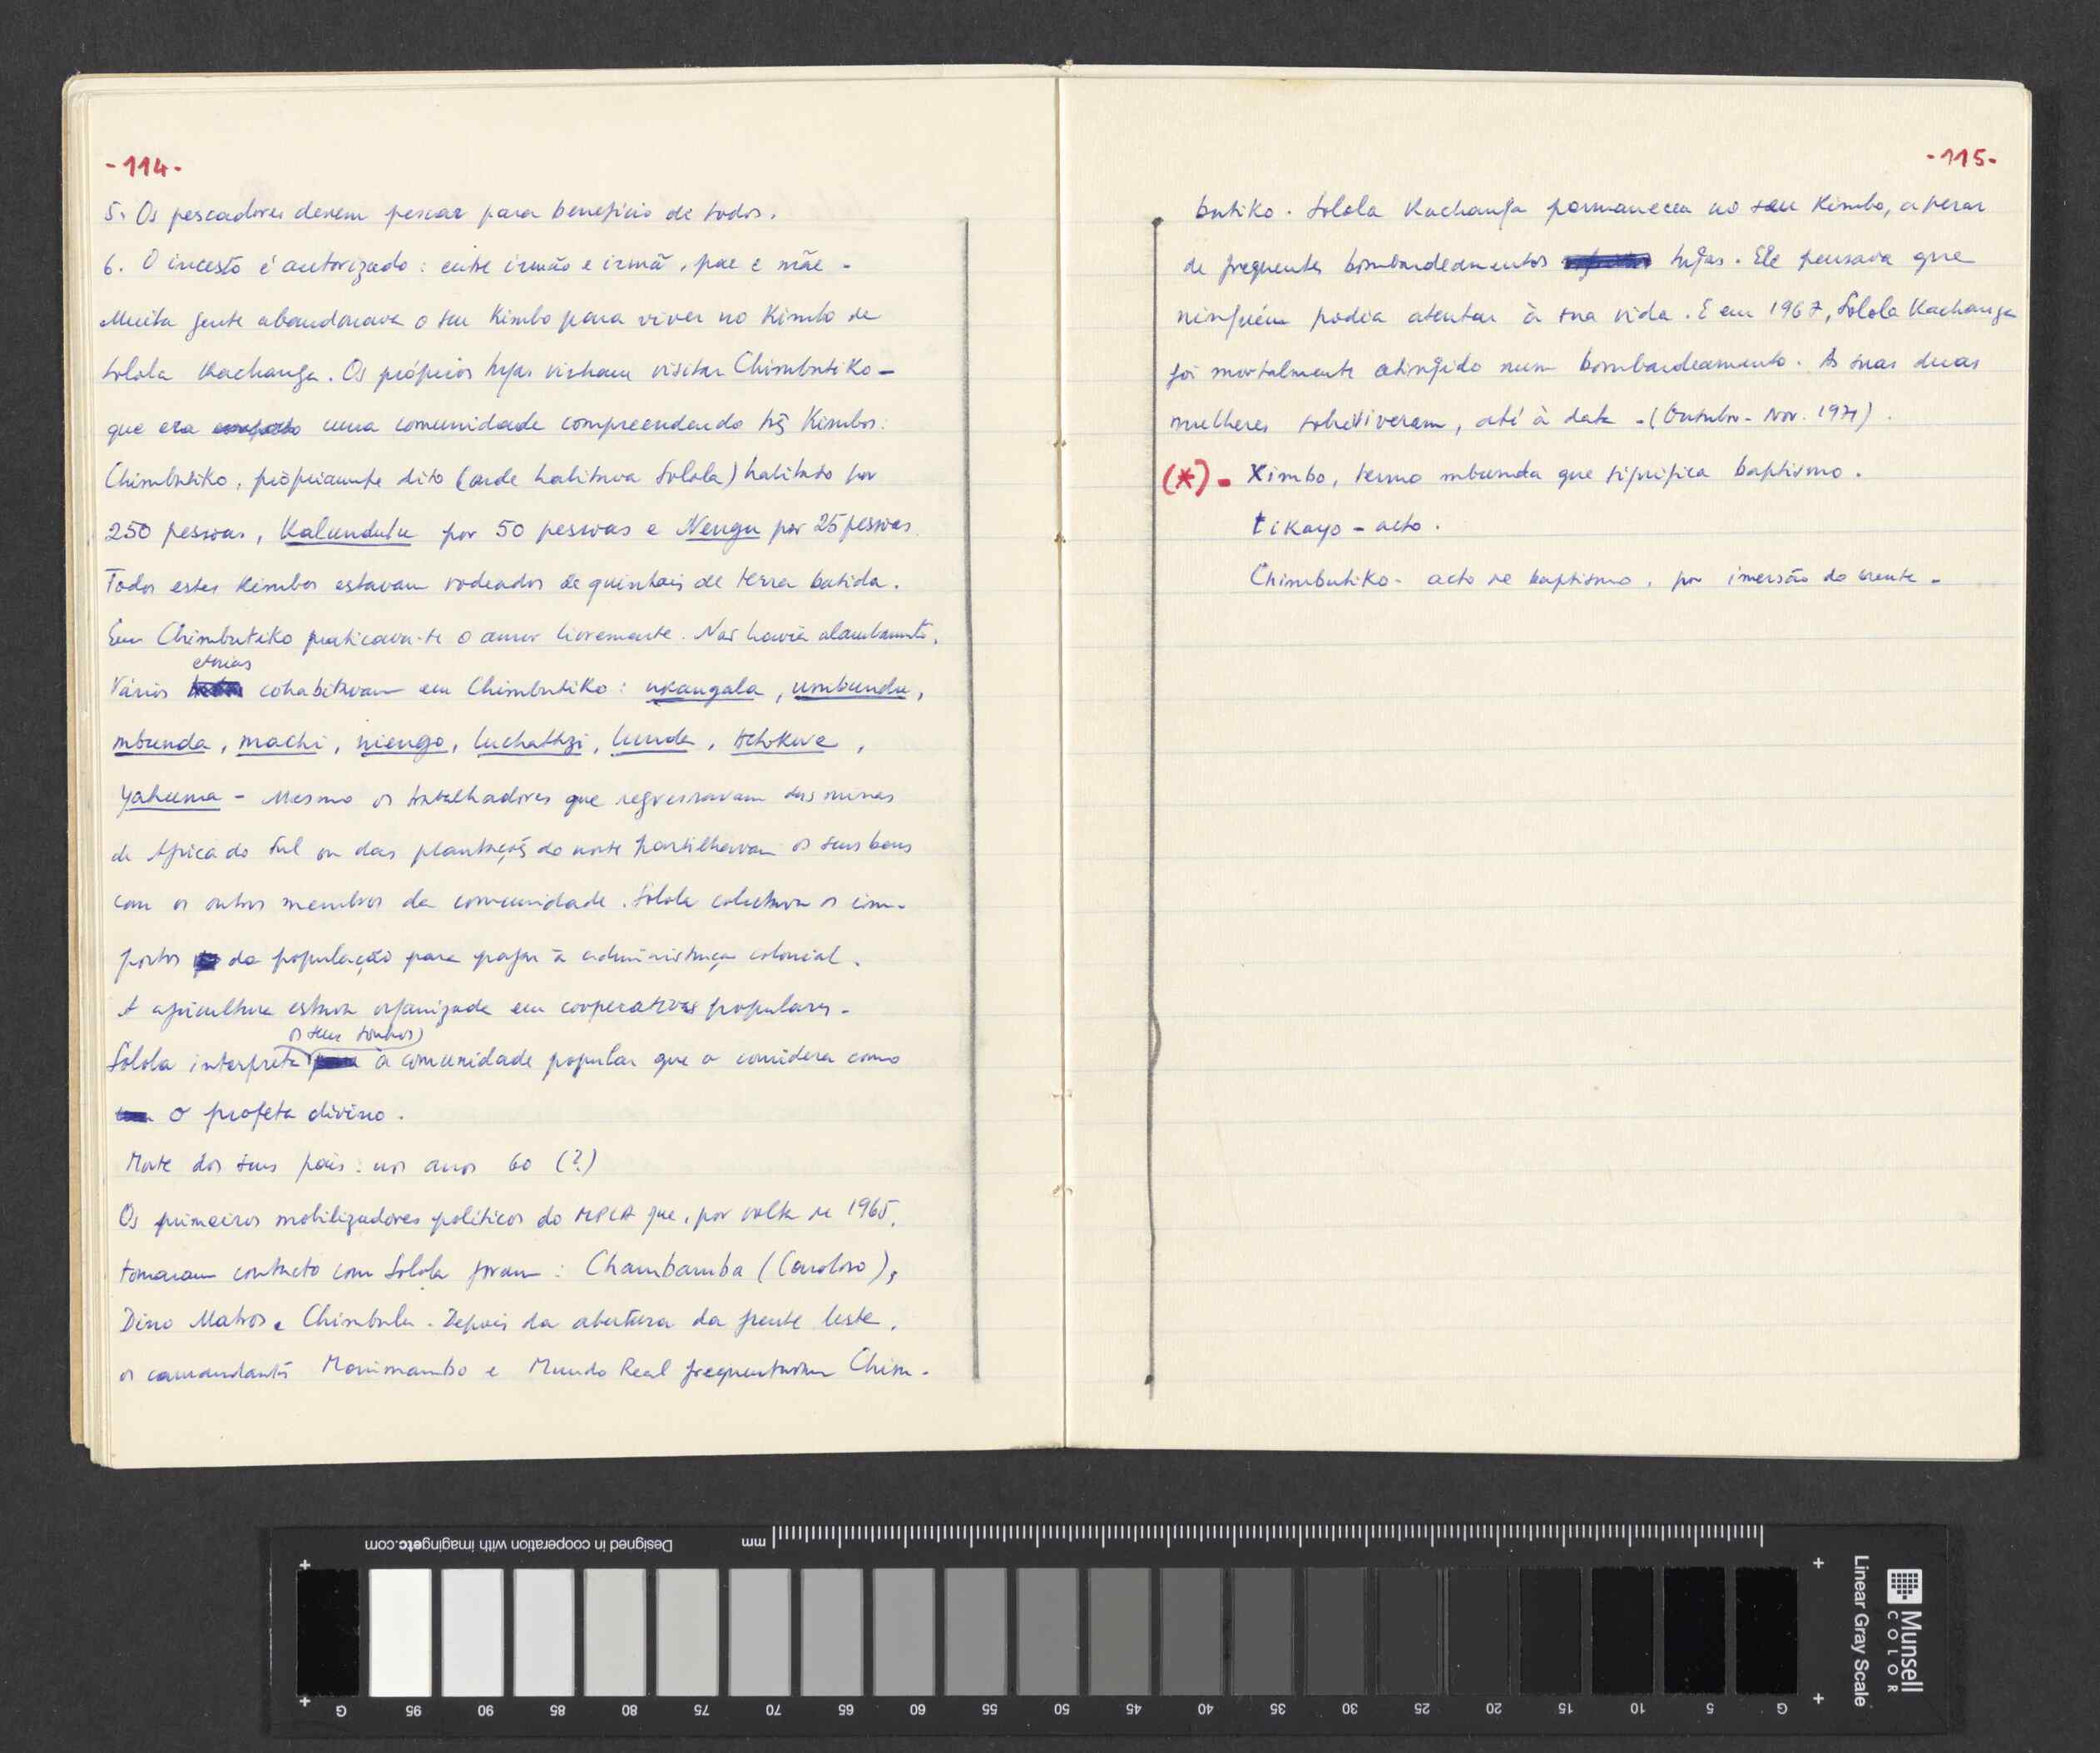 -114-
5. Os pescadores devem pescar para benefício de todos.
6. O incesto é autorizado: entre irmão e irmã, pae e mãe -
Muita gente abandonava o seu Kimbo para viver no Kimbo de
Solola Kachanga. Os próprios tugas vinham visitar Chimbutiko -
que era uma comunidade compreendendo três Kimbos:
Chimbutiko, pròpriamente dito (onde habitava Solola) habitado por
250 pessoas, Kalundulu por 50 pessoas e Nengu por 25 pessoas.
Todos estes Kimbos estavam rodeados de quintais de terra batida.
Em Chimbutiko praticava-se o amor livremente. Não havia alambamento.
etnias
Vários cohabitavam em Chimbutiko: nkangala, umbundu,
mbunda, machi, niengo, luchathzi, lunda, tchokwe,
Yahuma - Mesmo os trabalhadores que regressavam das minas
de Africa do Sul ou das plantações do norte partilhavam os seus bens
com os outros membros da comunidade. Solola colectava os im-
postos da população para pagar à administração colonial.
A apicultura estava organizada em cooperativas populares.
os seus sonhos
Solola interpreta à comunidade popular que o considera como
o profeta divino.
Morte dos seus pais: nos anos 60 (?)
Os primeiros mobilizadores políticos do MPLA que, por volta de 1965,
tomaram contacto com Solola foram: Chambamba (),
Dino Matros e Chimbulu. Depois da abertura da frente leste,
os comandantes Monimambo e Mundo Real frequentavam Chim-
-115-
butiko. Solola Kachanga permaneceu no seu Kimbo, apesar
de frequentes bombardeamentos tugas. Ele pensava que
ninguém podia atentar à sua vida. E em 1967, Solola Kachanga
foi mortalmente atingido num bombardeamento. As suas duas
mulheres sobreviveram, até à data - (Outubro - Nov. 1971).
(*) - Ximbo, termo mbunda que significa baptismo.
tikayo - acto.
Chimbutiko - acto de baptismo, por imersão do crente -
Designed in cooperation with imagingetc.com
mm
G 95 90 85 80 75 70 65 60 55 50 45 40 35 30 25 20 15 10 5 G
Munsell
COLOR
Linear Gray Scale